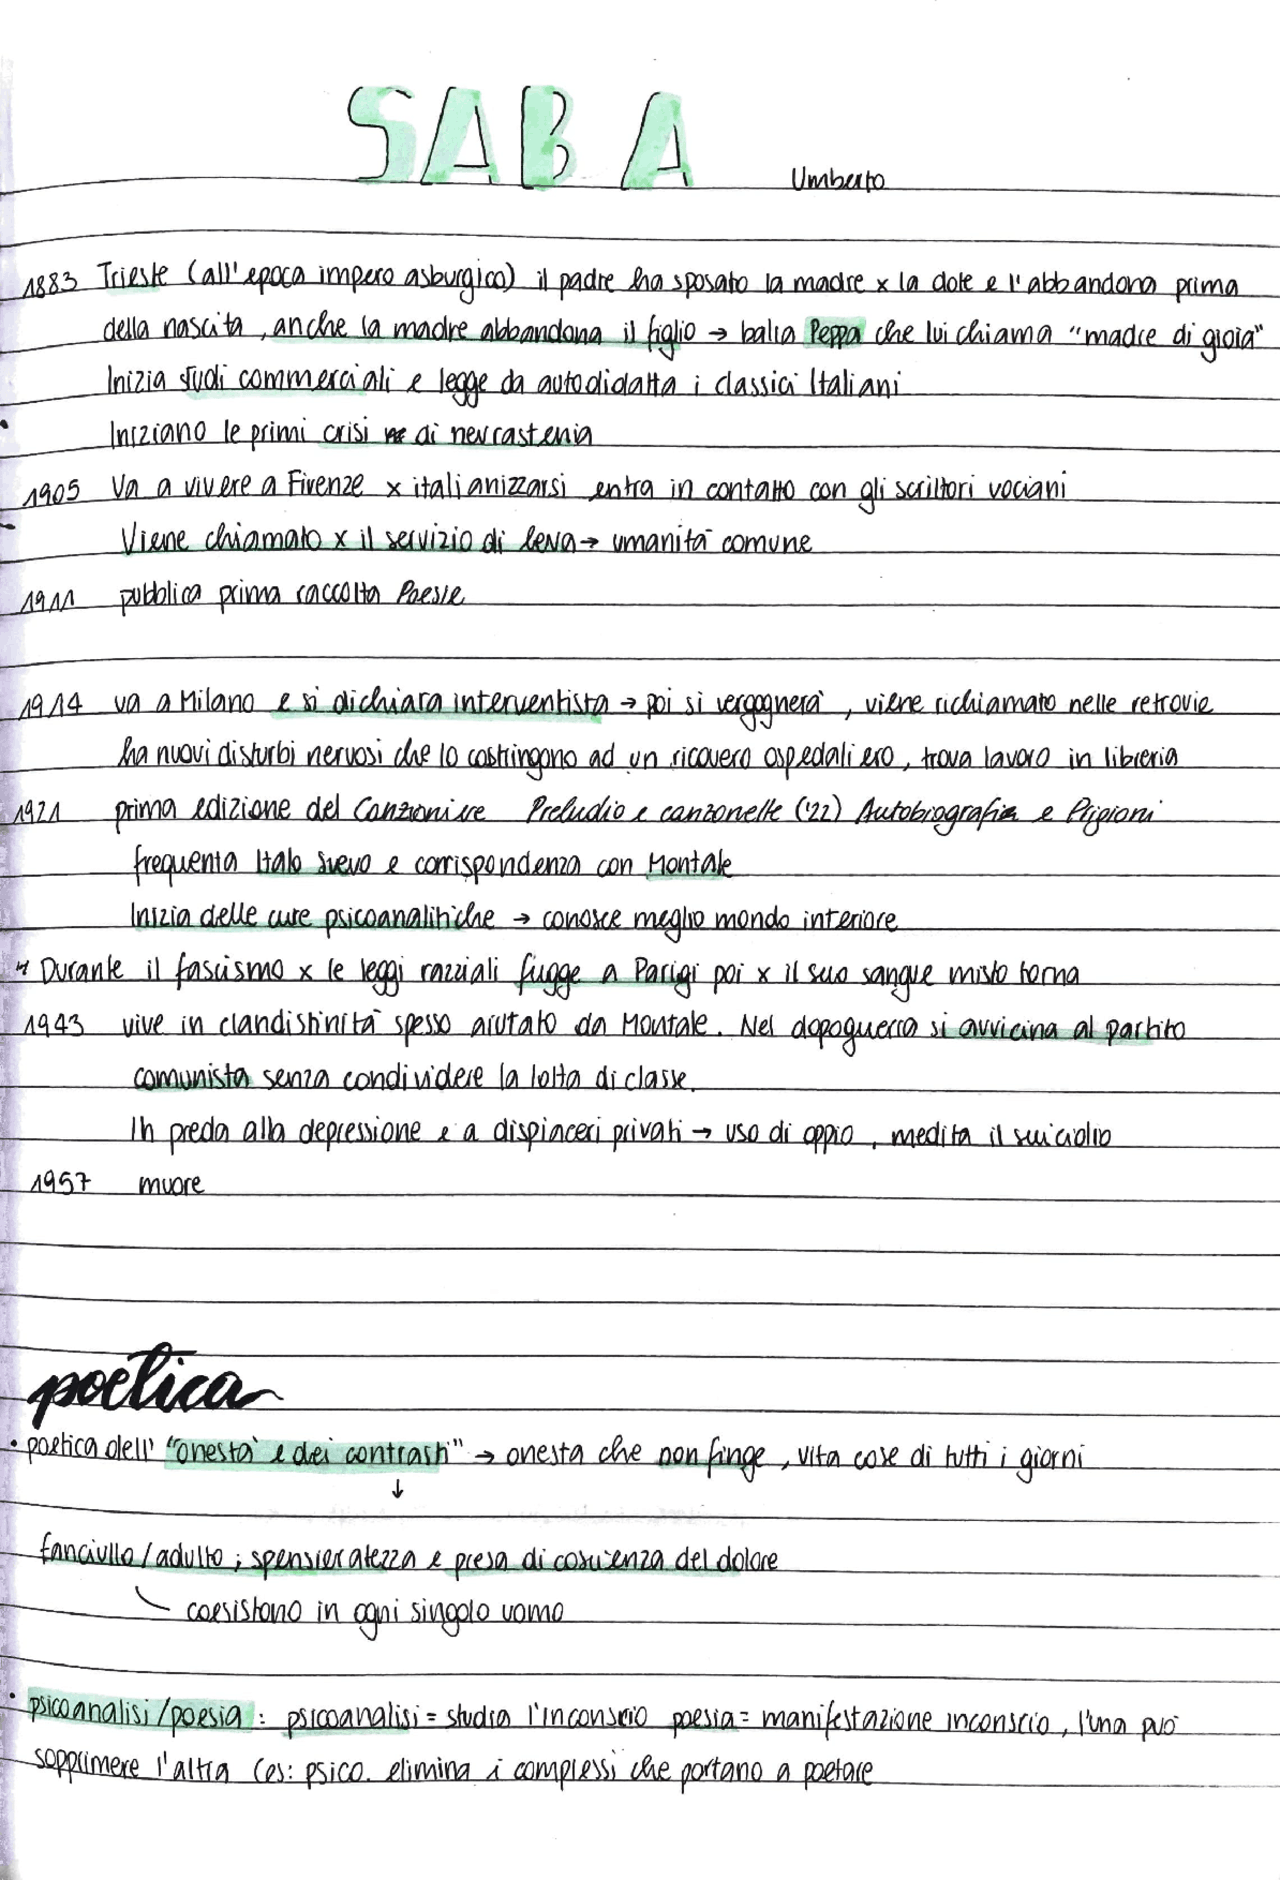 SABA Umberto
1883 Trieste (all'epoca impero asburgico) il padre ha sposato la madre x la dote e l'abbandona prima
della nascita, anche la madre abbandona il figlio → balia Peppa che lui chiama "madre di gioia"
Inizia studi commerciali e legge da autodidatta i classici Italiani
Iniziano le primi crisi di nevrastenia
1905 Va a vivere a Firenze x italianizzarsi entra in contatto con gli scrittori vociani
Viene chiamato x il servizio di leva → umanità comune
1911 pubblica prima raccolta Poesie
1914 va a Milano e si dichiara interventista → poi si vergognerà, viene richiamato nelle retrovie
ha nuovi disturbi nervosi che lo costringono ad un ricovero ospedaliero, trova lavoro in libreria
1921 prima edizione del Canzoniere Preludio e canzonette ('22) Autobiografia e Prigioni
frequenta Italo Svevo e corrispondenza con Montale
Inizia delle cure psicoanalitiche → conosce meglio mondo interiore
Durante il fascismo x le leggi razziali fugge a Parigi poi x il suo sangue misto torna
1943 vive in clandistinità spesso aiutato da Montale. Nel dopoguerra si avvicina al partito
comunista senza condividere la lotta di classe.
In preda alla depressione e a dispiaceri privati → uso di oppio, medita il suicidio
1957 muore
poetica
• poetica dell' "onestà e dei contrasti" → onesta che non finge, vita cose di tutti i giorni
↓
fanciullo/adulto; spensieratezza e presa di coscienza del dolore
coesistono in ogni singolo uomo
• psicoanalisi/poesia: psicoanalisi = studia l'inconscio poesia = manifestazione inconscio, l'una può
sopprimere l'altra (es: psico. elimina i complessi che portano a poetare